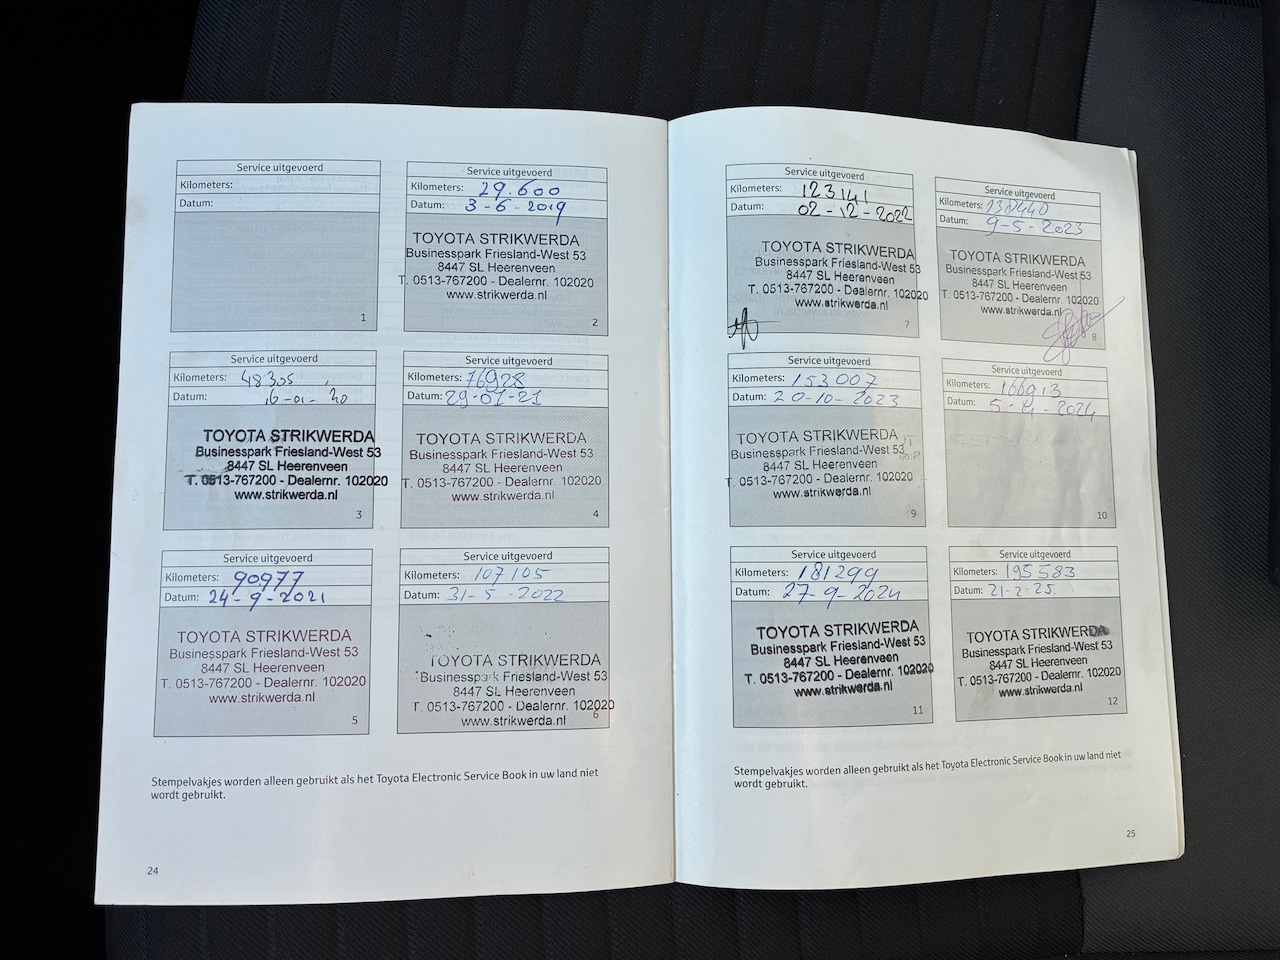 Service uitgevoerd
Kilometers:
Datum:
1
Service uitgevoerd
Kilometers: 29.600
Datum: 3-6-2019
TOYOTA STRIKWERDA
Businesspark Friesland-West 53
8447 SL Heerenveen
T. 0513-767200 - Dealernr. 102020
www.strikwerda.nl
2
Service uitgevoerd
Kilometers: 48305
Datum: 16-01-20
TOYOTA STRIKWERDA
Businesspark Friesland-West 53
8447 SL Heerenveen
T. 0513-767200 - Dealernr. 102020
www.strikwerda.nl
3
Service uitgevoerd
Kilometers: 76928
Datum: 29-01-21
TOYOTA STRIKWERDA
Businesspark Friesland-West 53
8447 SL Heerenveen
T. 0513-767200 - Dealernr. 102020
www.strikwerda.nl
4
Service uitgevoerd
Kilometers: 90977
Datum: 24-9-2021
TOYOTA STRIKWERDA
Businesspark Friesland-West 53
8447 SL Heerenveen
T. 0513-767200 - Dealernr. 102020
www.strikwerda.nl
5
Service uitgevoerd
Kilometers: 107105
Datum: 31-5-2022
TOYOTA STRIKWERDA
Businesspark Friesland-West 53
8447 SL Heerenveen
T. 0513-767200 - Dealernr. 102020
www.strikwerda.nl
6
Stempelvakjes worden alleen gebruikt als het Toyota Electronic Service Book in uw land niet
wordt gebruikt.
24
Service uitgevoerd
Kilometers: 123141
Datum: 02-12-2022
TOYOTA STRIKWERDA
Businesspark Friesland-West 53
8447 SL Heerenveen
T. 0513-767200 - Dealernr. 102020
www.strikwerda.nl
7
Service uitgevoerd
Kilometers:
Datum: 9-5-2023
TOYOTA STRIKWERDA
Businesspark Friesland-West 53
8447 SL Heerenveen
T. 0513-767200 - Dealernr. 102020
www.strikwerda.nl
8
Service uitgevoerd
Kilometers: 153007
Datum: 20-10-2023
TOYOTA STRIKWERDA
Businesspark Friesland-West 53
8447 SL Heerenveen
T. 0513-767200 - Dealernr. 102020
www.strikwerda.nl
9
Service uitgevoerd
Kilometers: 166913
Datum: 5-4-2024
10
Service uitgevoerd
Kilometers: 181299
Datum: 27-9-2024
TOYOTA STRIKWERDA
Businesspark Friesland-West 53
8447 SL Heerenveen
T. 0513-767200 - Dealernr. 102020
www.strikwerda.nl
11
Service uitgevoerd
Kilometers: 195583
Datum: 21-2-25.
TOYOTA STRIKWERDA
Businesspark Friesland-West 53
8447 SL Heerenveen
T. 0513-767200 - Dealernr. 102020
www.strikwerda.nl
12
Stempelvakjes worden alleen gebruikt als het Toyota Electronic Service Book in uw land niet
wordt gebruikt.
25